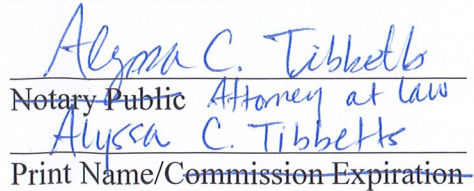 Alyssa C. Tibbetts
Notary Public Attorney at Law
Alyssa C. Tibbetts
Print Name/Commission Expiration